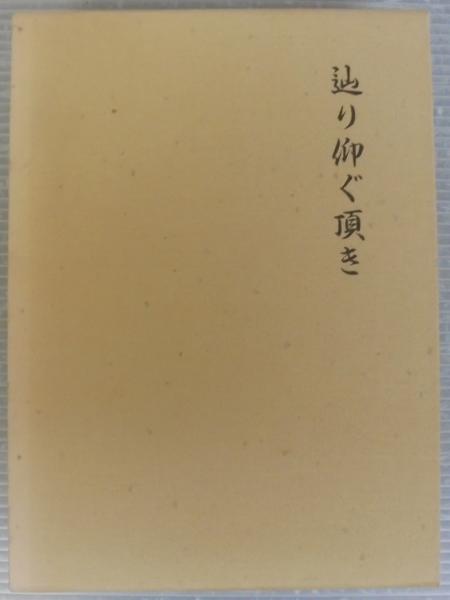 辿り仰ぐ頂き